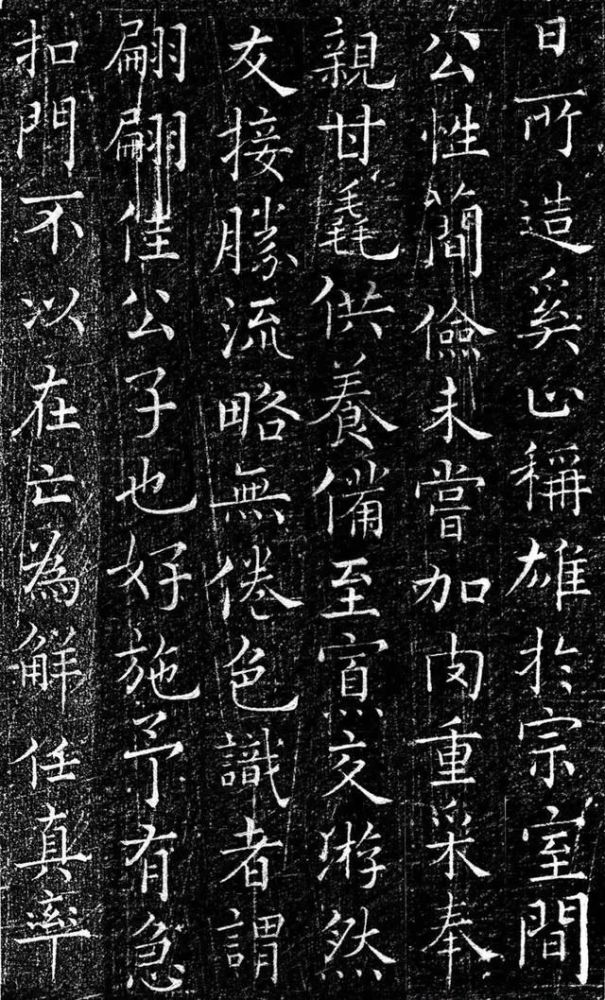 日所造奚止稱雄於宗室間
公性簡儉未嘗加肉重采奉
親甘毳供養備至寡交游然
友接勝流略無倦色識者謂
翩翩佳公子也好施予有急
扣門不以在亡為觧任真率